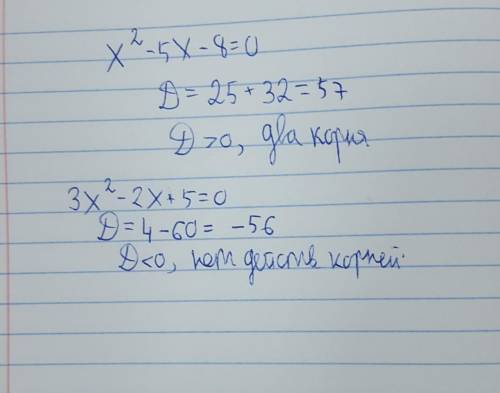 x² - 5x - 8 = 0
D = 25 + 32 = 57
D > 0, два корня
3x² - 2x + 5 = 0
D = 4 - 60 = -56
D < 0, нет действ корней.